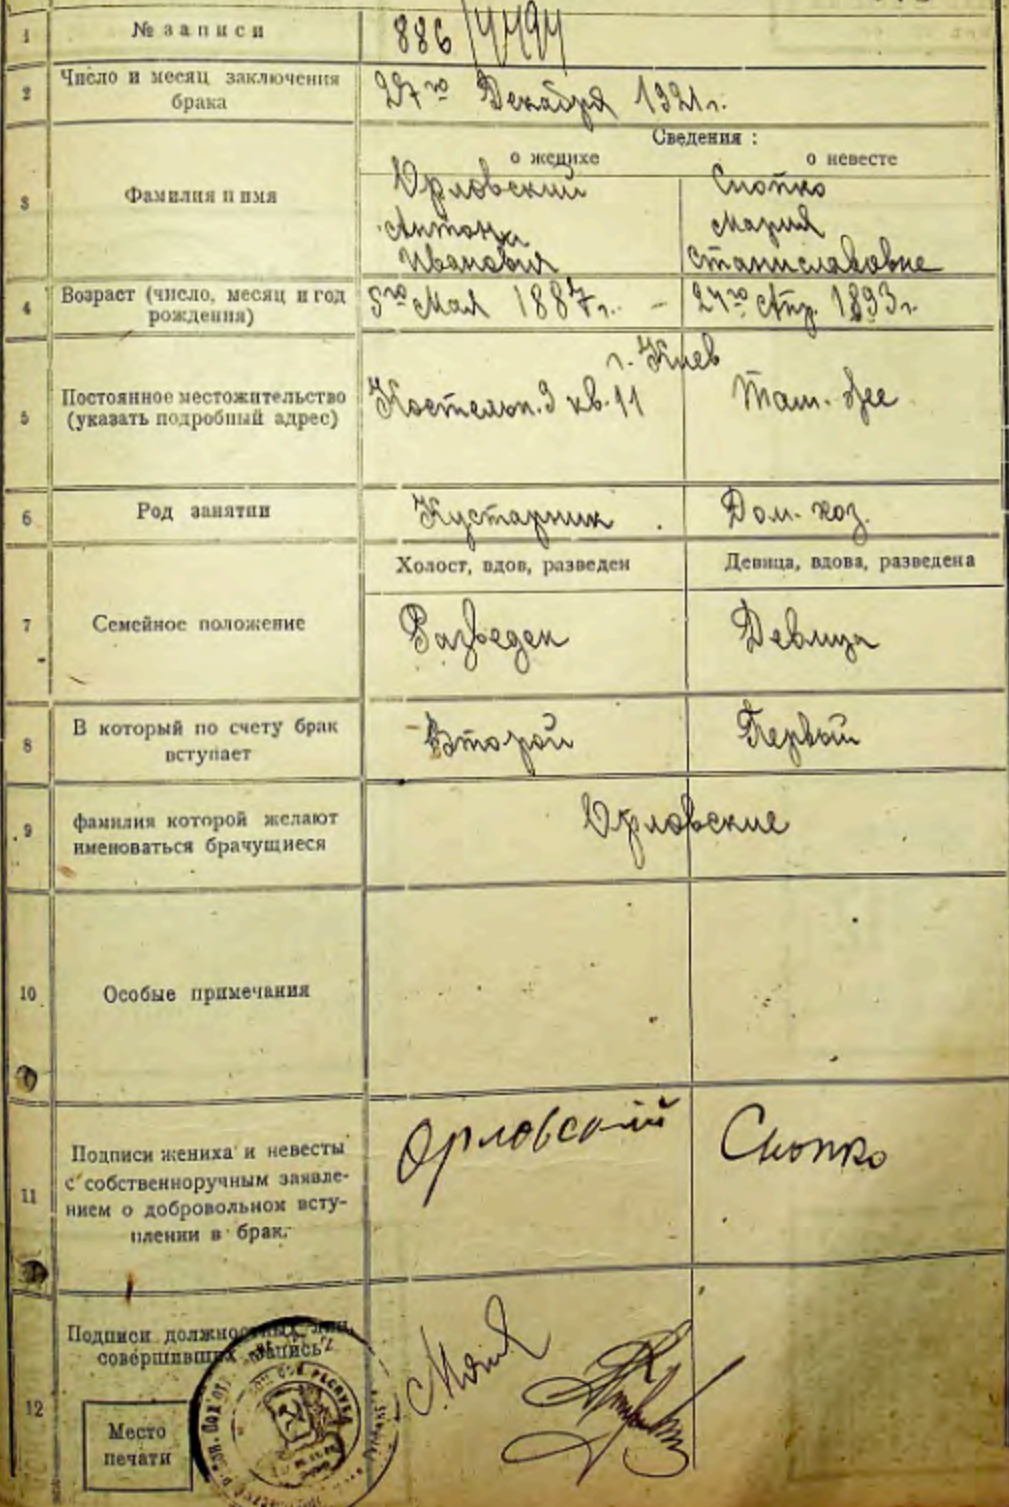 1 № записи 886/4494
2 Число и месяц заключения брака 27го Декабря 1921г.
Сведения :
о женихе о невесте
3 Фамилия и имя Орловский Снопко
Антон Мария
Иванович Станиславовне
4 Возраст (число, месяц и год рождения) 5го Мая 1887г. - 24го Апр. 1893г.
г. Киев
5 Постоянное местожительство (указать подробный адрес) Костельн. 3 кв. 11 Там-же
6 Род занятии Кустарник. Дом. хоз.
Холост, вдов, разведен Девица, вдова, разведена
7 Семейное положение Разведен Девица
8 В который по счету брак вступает Второй Первый
9 фамилия которой желают именоваться брачущиеся Орловские
10 Особые примечания
11 Подписи жениха и невесты с собственноручным заявлением о добровольном вступлении в брак. Орловский Снопко
12 Подписи должностных лиц, совершивших запись
Место
печати